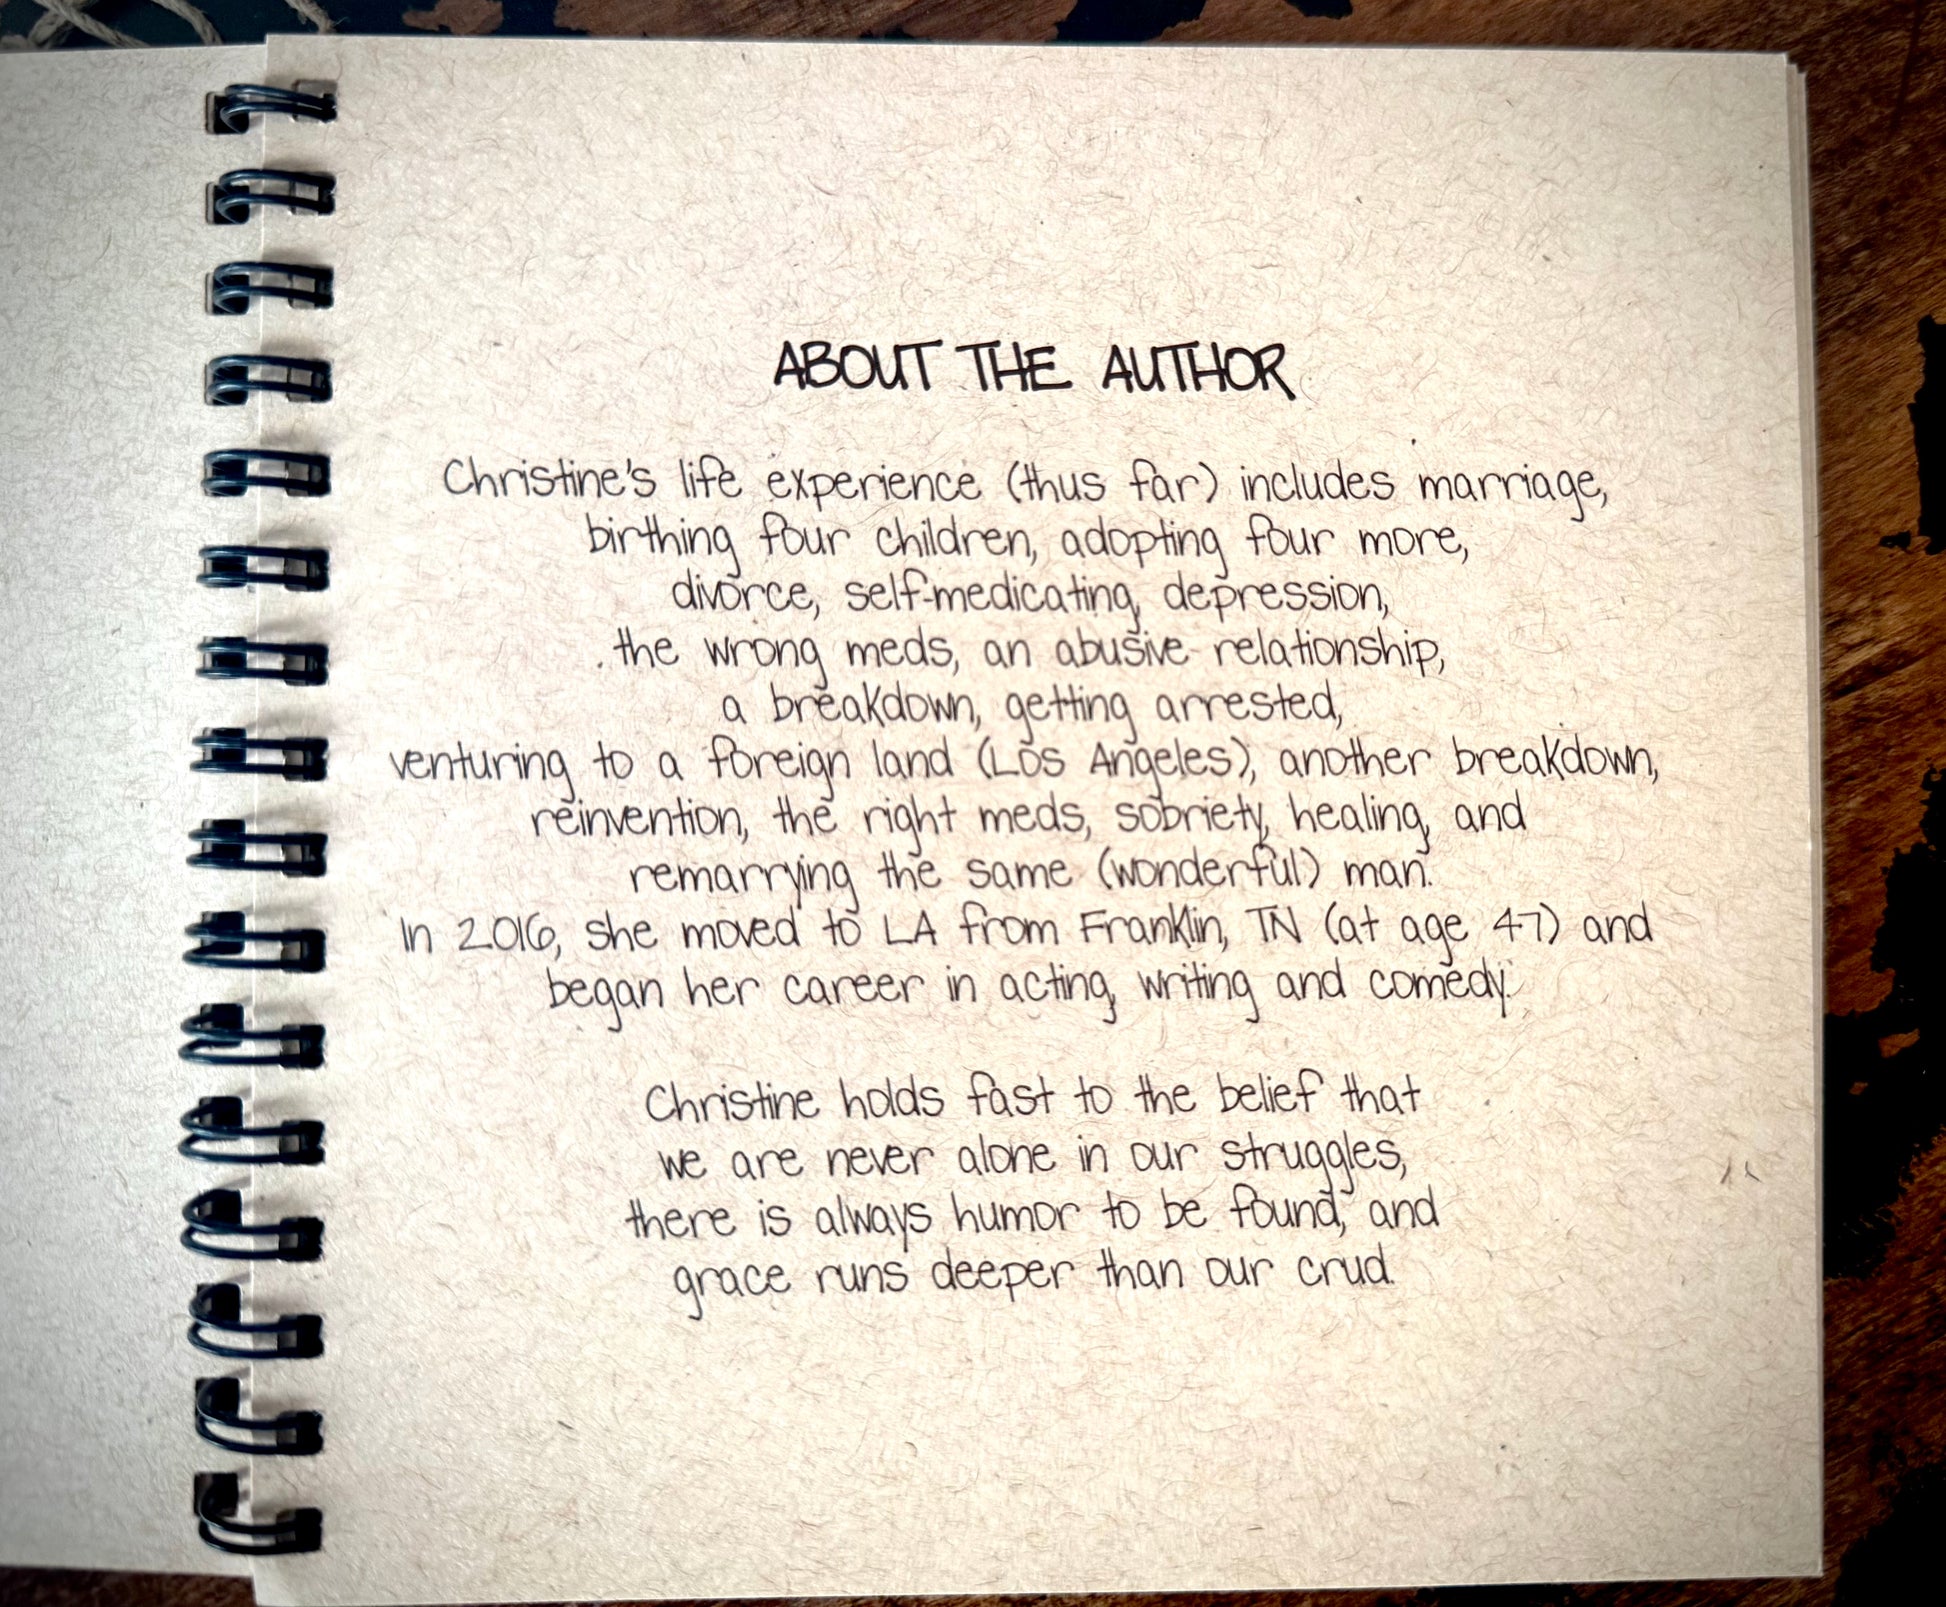 ABOUT THE AUTHOR
Christine's life experience (thus far) includes marriage,
birthing four children, adopting four more,
divorce, self-medicating, depression,
the wrong meds, an abusive relationship,
a breakdown, getting arrested,
venturing to a foreign land (Los Angeles), another breakdown,
reinvention, the right meds, sobriety, healing, and
remarrying the same (wonderful) man.
In 2016, she moved to LA from Franklin, TN (at age 47) and
began her career in acting, writing and comedy.
Christine holds fast to the belief that
we are never alone in our struggles,
there is always humor to be found, and
grace runs deeper than our crud.